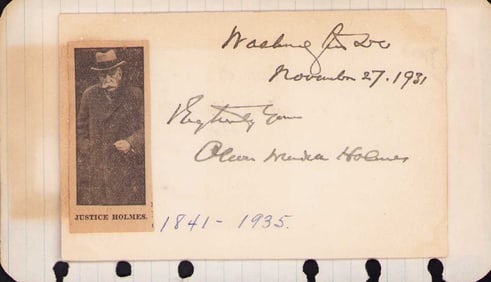 Washington DC
November 27. 1931
Very truly Yours
Oliver Wendell Holmes
JUSTICE HOLMES.
1841 - 1935.